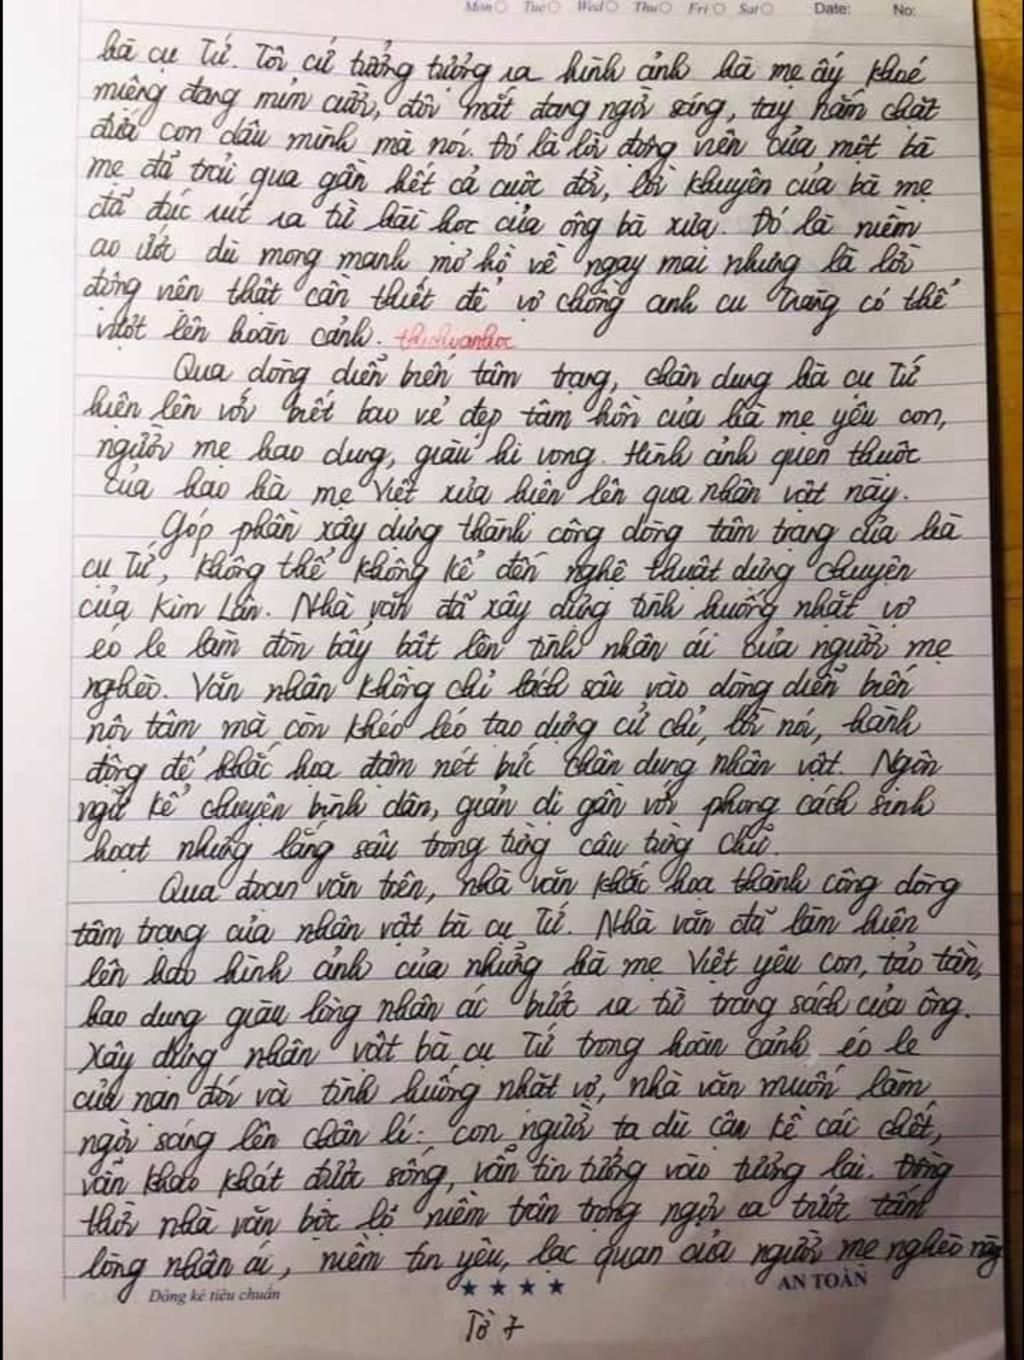 Mon Tue Wed Thu Fri Sat Date: No:
bà cụ Tứ. Tôi cứ tưởng tượng ra hình ảnh bà mẹ ấy khoé
miệng đang mỉm cười, đôi mắt đang ngời sáng, tay nắm chặt
đứa con dâu mình mà nói. Đó là lời động viên của một bà
mẹ đã trải qua gần hết cả cuộc đời, lời khuyên của bà mẹ
đã đúc rút ra từ bài học của ông bà xưa. Đó là niềm
ao ước dù mong manh mơ hồ về ngày mai nhưng là lời
động viên thật cần thiết để vợ chồng anh cu Tràng có thể
vượt lên hoàn cảnh. thichvanhoc
Qua dòng diễn biến tâm trạng, chân dung bà cụ Tứ
hiện lên với biết bao vẻ đẹp tâm hồn của bà mẹ yêu con,
người mẹ bao dung, giàu hi vọng. Hình ảnh quen thuộc
của bao bà mẹ Việt xưa hiện lên qua nhân vật này.
Góp phần xây dựng thành công dòng tâm trạng của bà
cụ Tứ, không thể không kể đến nghệ thuật dựng chuyện
của Kim Lân. Nhà văn đã xây dựng tình huống nhặt vợ
éo le làm đòn bẩy bật lên tình nhân ái của người mẹ
nghèo. Văn nhân không chỉ lách sâu vào dòng diễn biến
nội tâm mà còn khéo léo tạo dựng cử chỉ, lời nói, hành
động để khắc họa đậm nét bức chân dung nhân vật. Ngôn
ngữ kể chuyện bình dân, giản dị gần với phong cách sinh
hoạt nhưng lắng sâu trong từng câu từng chữ.
Qua đoạn văn trên, nhà văn khắc họa thành công dòng
tâm trạng của nhân vật bà cụ Tứ. Nhà văn đã làm hiện
lên bao hình ảnh của những bà mẹ Việt yêu con, tảo tần,
bao dung giàu lòng nhân ái bước ra từ trang sách của ông.
Xây dựng nhân vật bà cụ Tứ trong hoàn cảnh éo le
của nạn đói và tình huống nhặt vợ, nhà văn muốn làm
ngời sáng lên chân lí: con người ta dù cận kề cái chết,
vẫn khao khát được sống, vẫn tin tưởng vào tương lai. Đồng
thời nhà văn bộc lộ niềm trân trọng ngợi ca trước tấm
lòng nhân ái, niềm tin yêu, lạc quan của người mẹ nghèo này
Dòng kẻ tiêu chuẩn ★ ★ ★ ★ AN TOÀN
Tờ 7